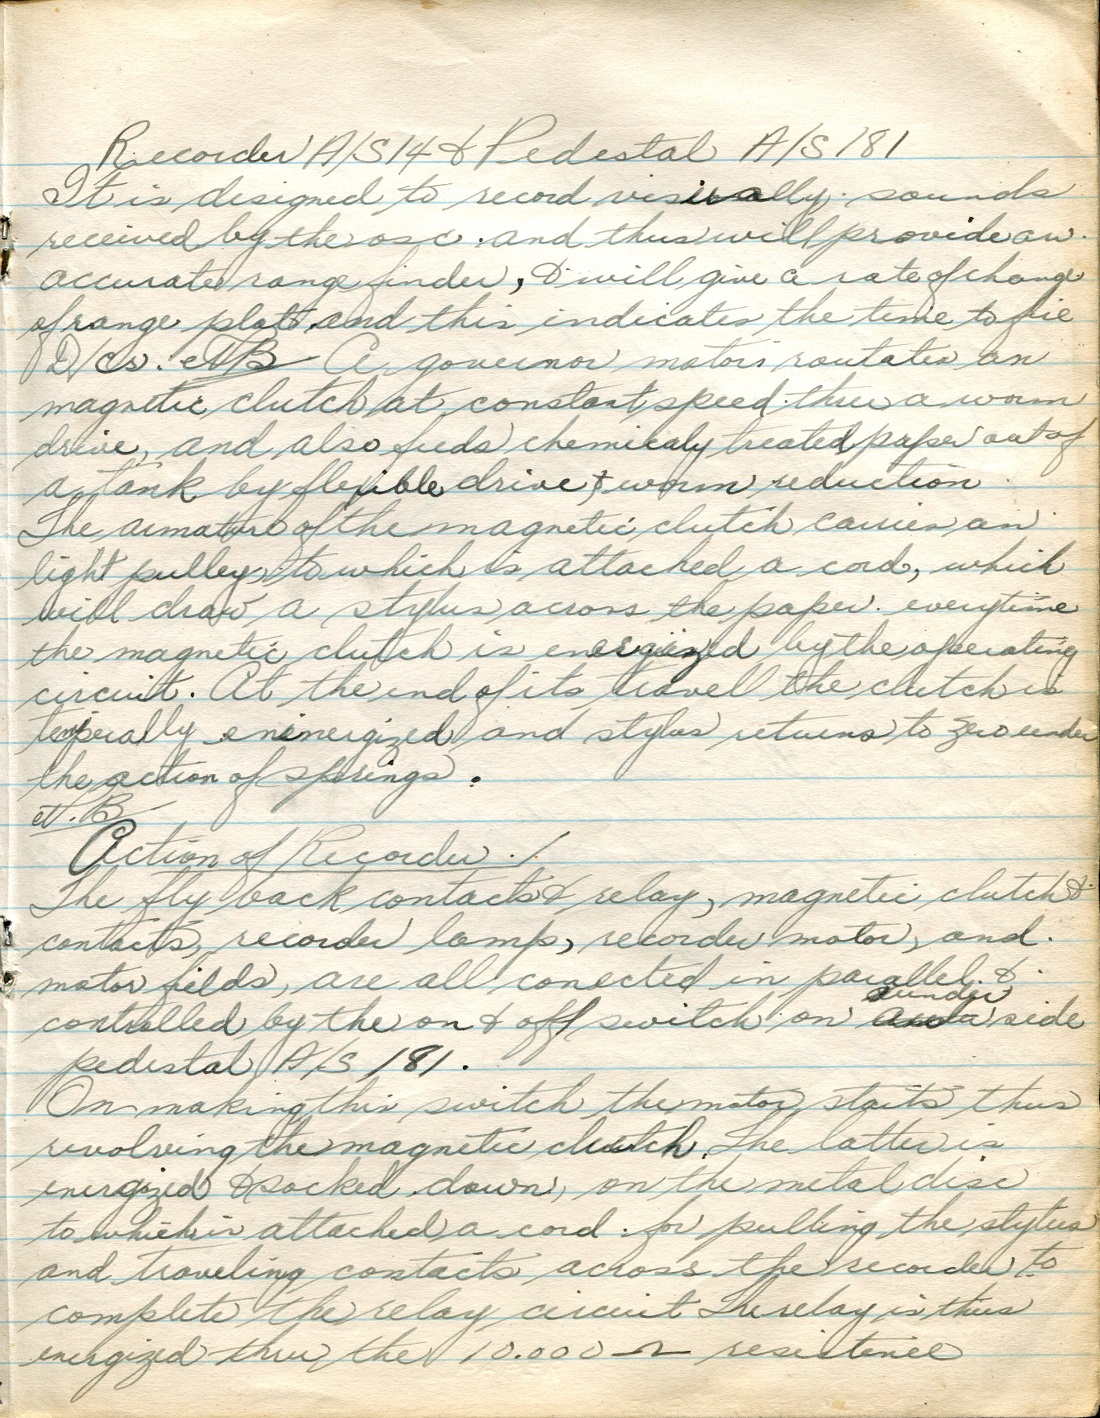 Recorder A/S 14 & Pedestal A/S 181
It is designed to record visirally sounds
received by the osc. and thus will provide an
accurate range finder, & will give a rate of change
of range plott, and this indicates the time to fire
D/Cs. NB A governor motors routates an
magnetic clutch at constant speed thru a worm
drive, and also feeds chemicaly treated paper out of
a tank by flexible drive & worm reduction
The armature of the magnetic clutch carries an
light pulley, to which is attached a cord, which
will draw a stylus across the paper. everytime
the magnetic clutch is energized by the operating
circuit. At the end of its travel the clutch is
and stylus returns to zero under
the action of springs.
N.B
Action of Recorder ./
The fly back contacts & relay, magnetic clutch &
contacts, recorder lamp, recorder motor, and
motor fields, are all conected in parallel &
under
controlled by the on & off switch on side
pedestal A/S 181.
On making this switch the motor starts thus
revolving the magnetic clutch. The latter is
energized & down, on the metal disc
to which is attached a cord for pulling the stylus
and traveling contacts across the recorder to
complete the relay circuit The relay is thus
energized thru the 10.000 Ω resistence